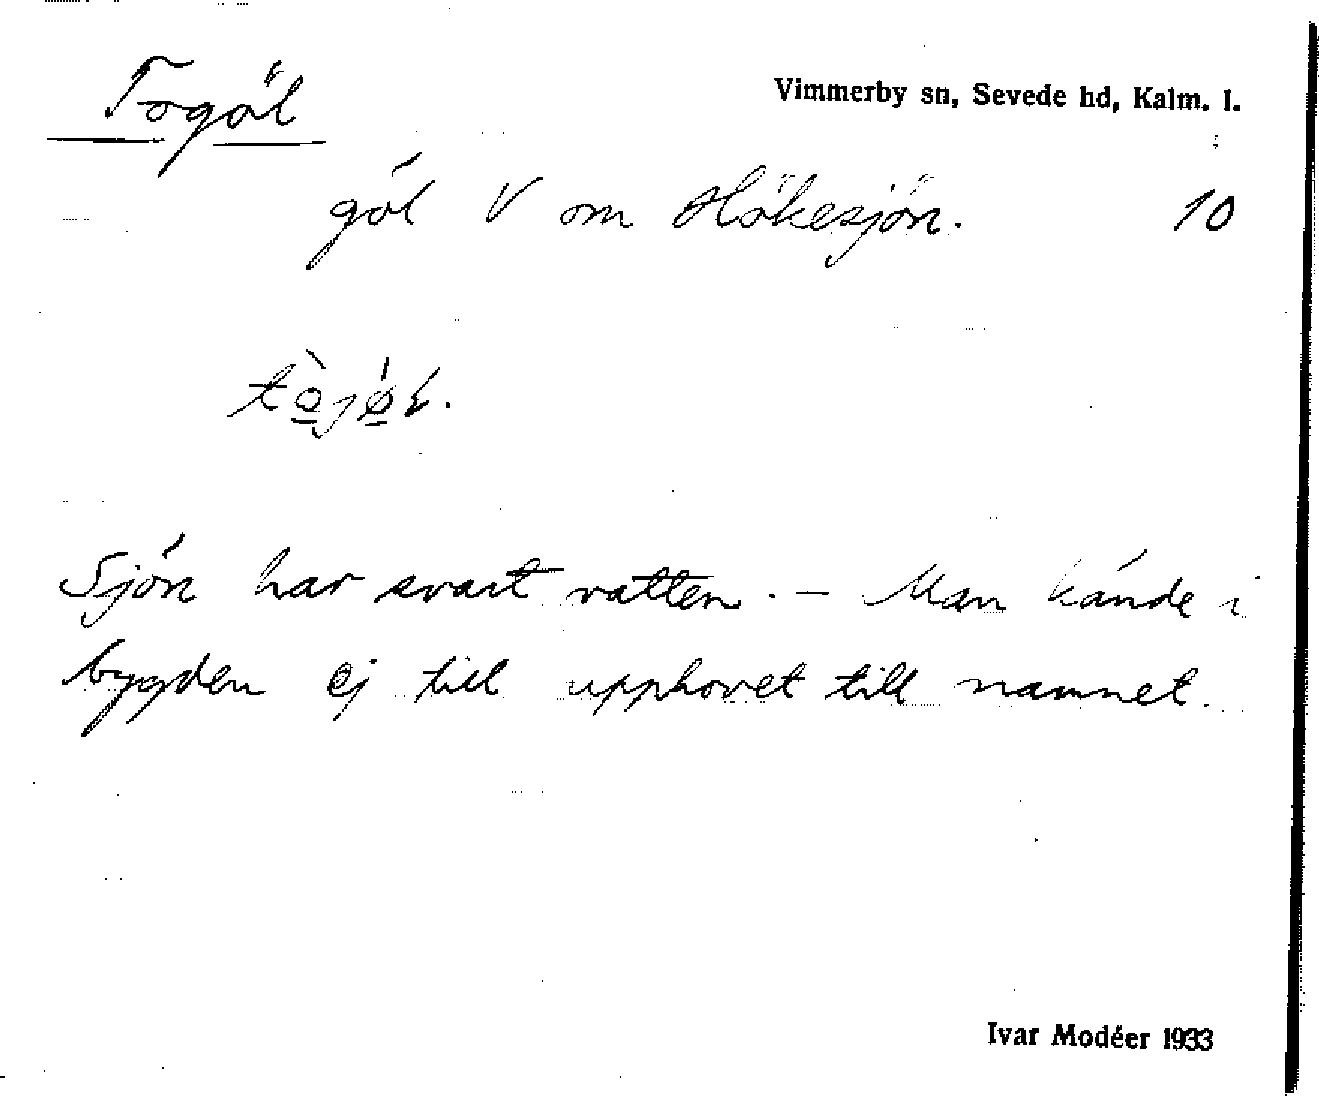 Togöl
Vimmerby sn, Sevede hd, Kalm. l.
göl V om Hökesjön. 10
Sjön har svart vatten. – Man kände i
bygden ej till upphovet till namnet.
Ivar Modéer 1933